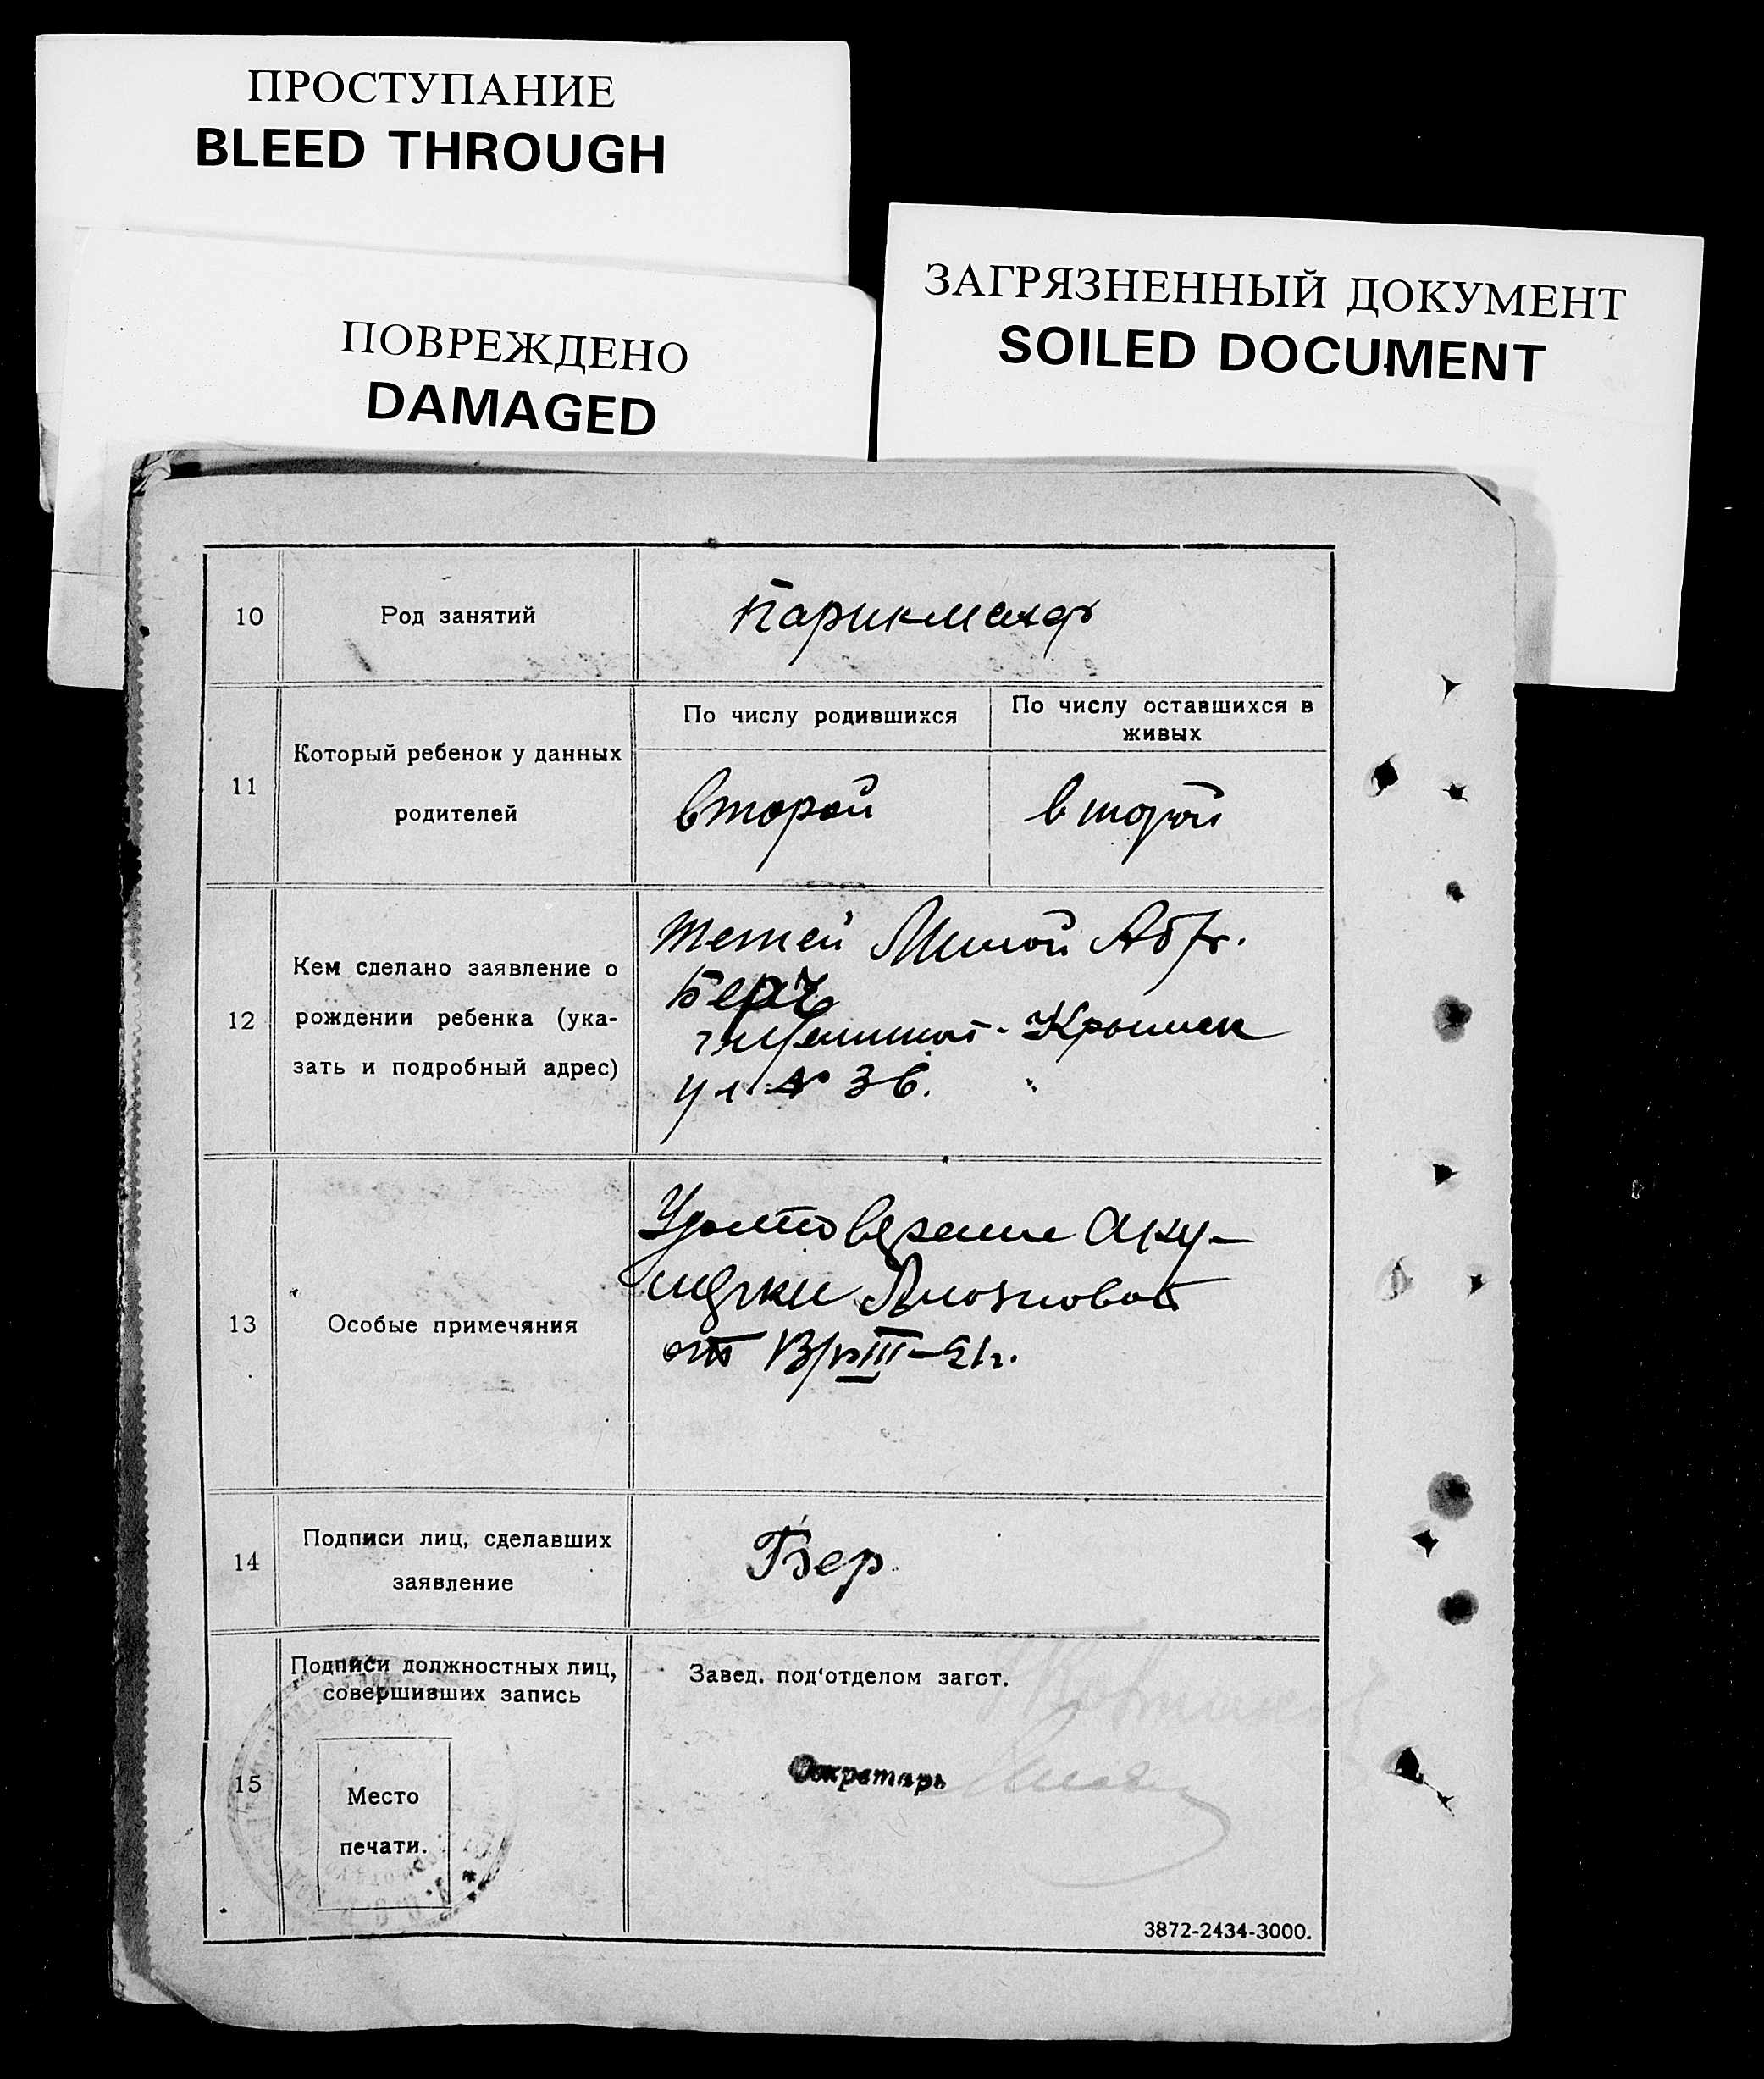 ПРОСТУПАНИЕ
BLEED THROUGH
ЗАГРЯЗНЕННЫЙ ДОКУМЕНТ
SOILED DOCUMENT
ПОВРЕЖДЕНО
DAMAGED
10 Род занятий Парикмахер
11 Который ребенок у данных родителей
По числу родившихся
По числу оставшихся в
живых
второй
второй
12
Кем сделано заявление о
рождении ребенка (ука-
зать и подробный адрес)
тетей Миной Абр.
Бер
ул № 36.
13 Особые примечяния
Удостоверение аку-
шерки
от 13/VIII-21г.
14
Подписи лиц, сделавших
заявление
Бер.
15
Подписи должностных лиц,
совершивших запись
Место
печати.
Завед. под‘отделом загст.
Секретарь
3872-2434-3000.